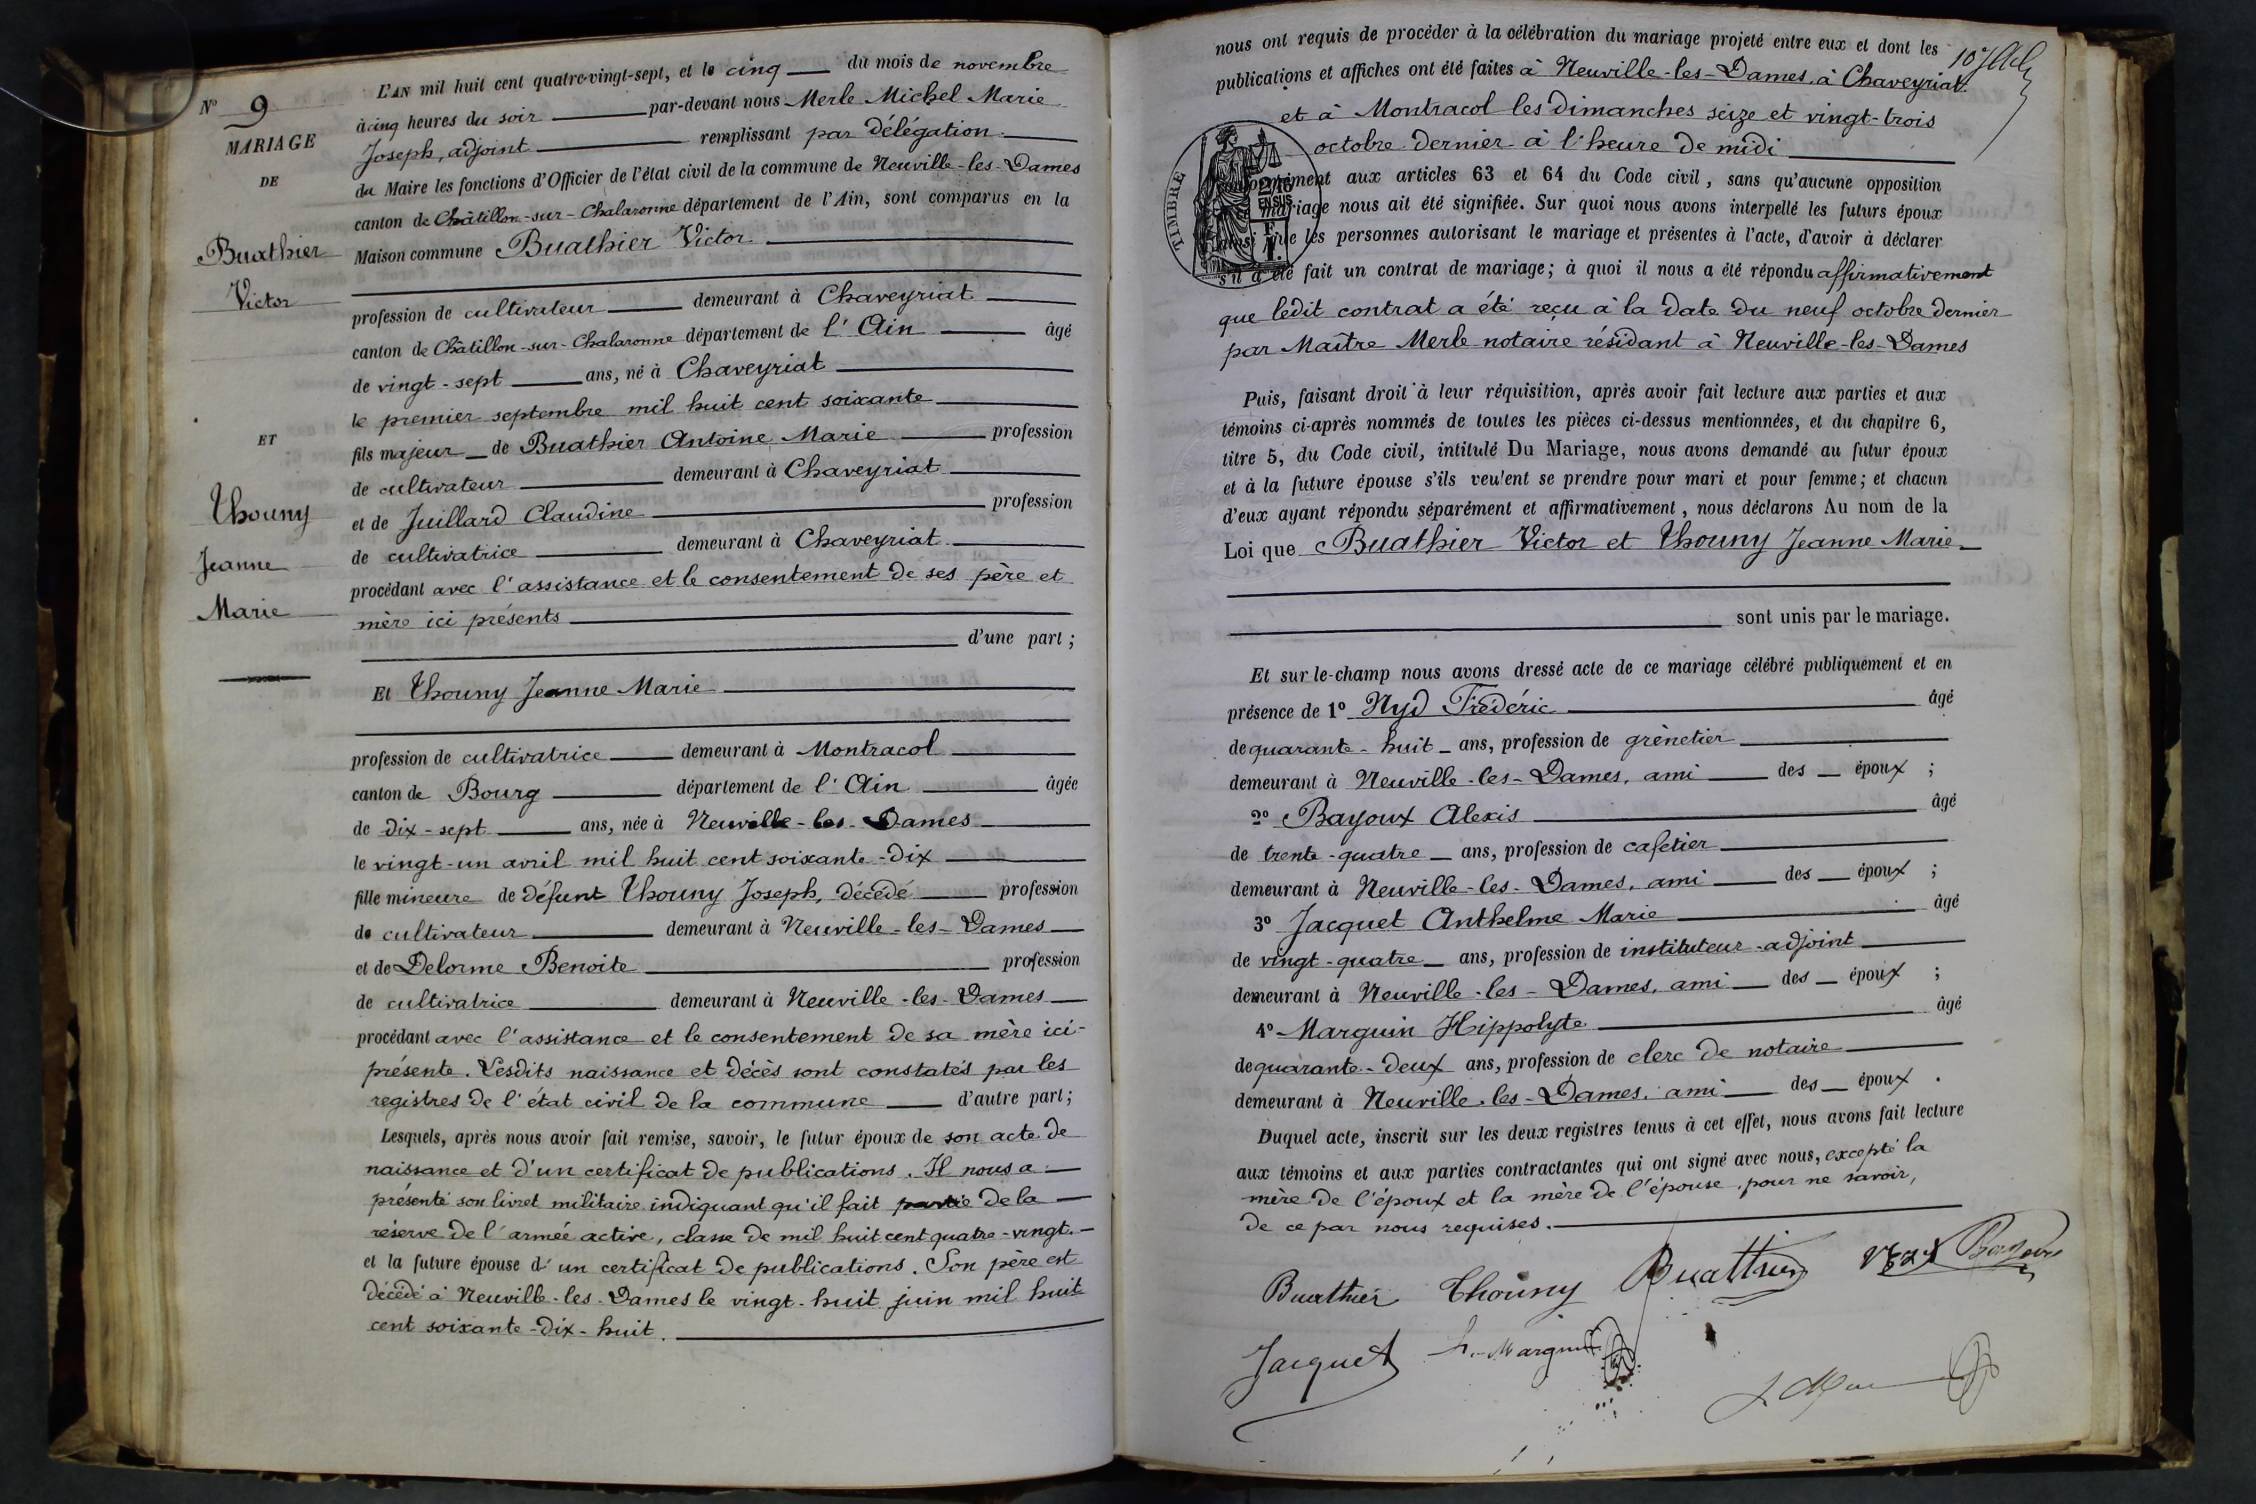 N° 9
MARIAGE
DE
Buathier
Victor
ET
Thouny
Jeanne
Marie
L'AN mil huit cent quatre-vingt-sept, et le cinq du mois de novembre
à cinq heures du soir par-devant nous Merle Michel Marie
Joseph, adjoint remplissant par délégation
du Maire les fonctions d'Officier de l'état civil de la commune de Neuville-les-Dames
canton de Châtillon-sur-Chalaronne département de l'Ain, sont comparus en la
Maison commune Buathier Victor
profession de cultivateur demeurant à Chaveyriat
canton de Châtillon-sur-Chalaronne département de l'Ain âgé
de vingt-sept ans, né à Chaveyriat
le premier septembre mil huit cent soixante
fils majeur de Buathier Antoine Marie profession
de cultivateur demeurant à Chaveyriat
et de Juillard Claudine profession
de cultivatrice demeurant à Chaveyriat
procédant avec l'assistance et le consentement de ses père et
mère ici présents
d'une part ;
Et Thouny Jeanne Marie
profession de cultivatrice demeurant à Montracol
canton de Bourg département de l'Ain âgée
de dix-sept ans, née à Neuville-les-Dames
le vingt-un avril mil huit cent soixante-dix
fille mineure de défunt Thouny Joseph, décédé profession
de cultivateur demeurant à Neuville-les-Dames
et de Delorme Benoite profession
de cultivatrice demeurant à Neuville-les-Dames
procédant avec l'assistance et le consentement de sa mère ici-
présente. Lesdits naissance et décès sont constatés par les
registres de l'état civil de la commune d'autre part ;
Lesquels, après nous avoir fait remise, savoir, le futur époux de son acte de
naissance et d'un certificat de publications. Il nous a
présenté son livret militaire indiquant qu'il fait partie de la
réserve de l'armée active, classe de mil huit cent quatre-vingt.
et la future épouse d'un certificat de publications. Son père est
décédé à Neuville-les-Dames le vingt-huit juin mil huit
cent soixante-dix-huit.
nous ont requis de procéder à la célébration du mariage projeté entre eux et dont les
publications et affiches ont été faites à Neuville-les-Dames, à Chaveyriat
et à Montracol les dimanches seize et vingt-trois
octobre dernier à l'heure de midi
conformément aux articles 63 et 64 du Code civil, sans qu'aucune opposition
mariage nous ait été signifiée. Sur quoi nous avons interpellé les futurs époux
ainsi que les personnes autorisant le mariage et présentes à l'acte, d'avoir à déclarer
s'il a été fait un contrat de mariage ; à quoi il nous a été répondu affirmativement
TIMBRE
2/10
EN SUS
que ledit contrat a été reçu à la date du neuf octobre dernier
par Maître Merle notaire résidant à Neuville-les-Dames
Puis, faisant droit à leur réquisition, après avoir fait lecture aux parties et aux
témoins ci-après nommés de toutes les pièces ci-dessus mentionnées, et du chapitre 6,
titre 5, du Code civil, intitulé Du Mariage, nous avons demandé au futur époux
et à la future épouse s'ils veulent se prendre pour mari et pour femme ; et chacun
d'eux ayant répondu séparément et affirmativement, nous déclarons Au nom de la
Loi que Buathier Victor et Thouny Jeanne Marie
sont unis par le mariage.
Et sur le-champ nous avons dressé acte de ce mariage célébré publiquement et en
présence de 1° Nyd Frédéric âgé
de quarante-huit ans, profession de grènetier
demeurant à Neuville-les-Dames, ami des époux ;
2° Bayoux Alexis âgé
de trente-quatre ans, profession de cafetier
demeurant à Neuville-les-Dames, ami des époux ;
3° Jacquet Anthelme Marie âgé
de vingt-quatre ans, profession de instituteur-adjoint
demeurant à Neuville-les-Dames, ami des époux ;
4° Marguin Hippolyte âgé
de quarante-deux ans, profession de clerc de notaire
demeurant à Neuville-les-Dames, ami des époux.
Duquel acte, inscrit sur les deux registres tenus à cet effet, nous avons fait lecture
aux témoins et aux parties contractantes qui ont signé avec nous, excepté la
mère de l'époux et la mère de l'épouse, pour ne savoir,
de ce par nous requises.
Buathier Thouny Buathier
Jacquet h. Marguin